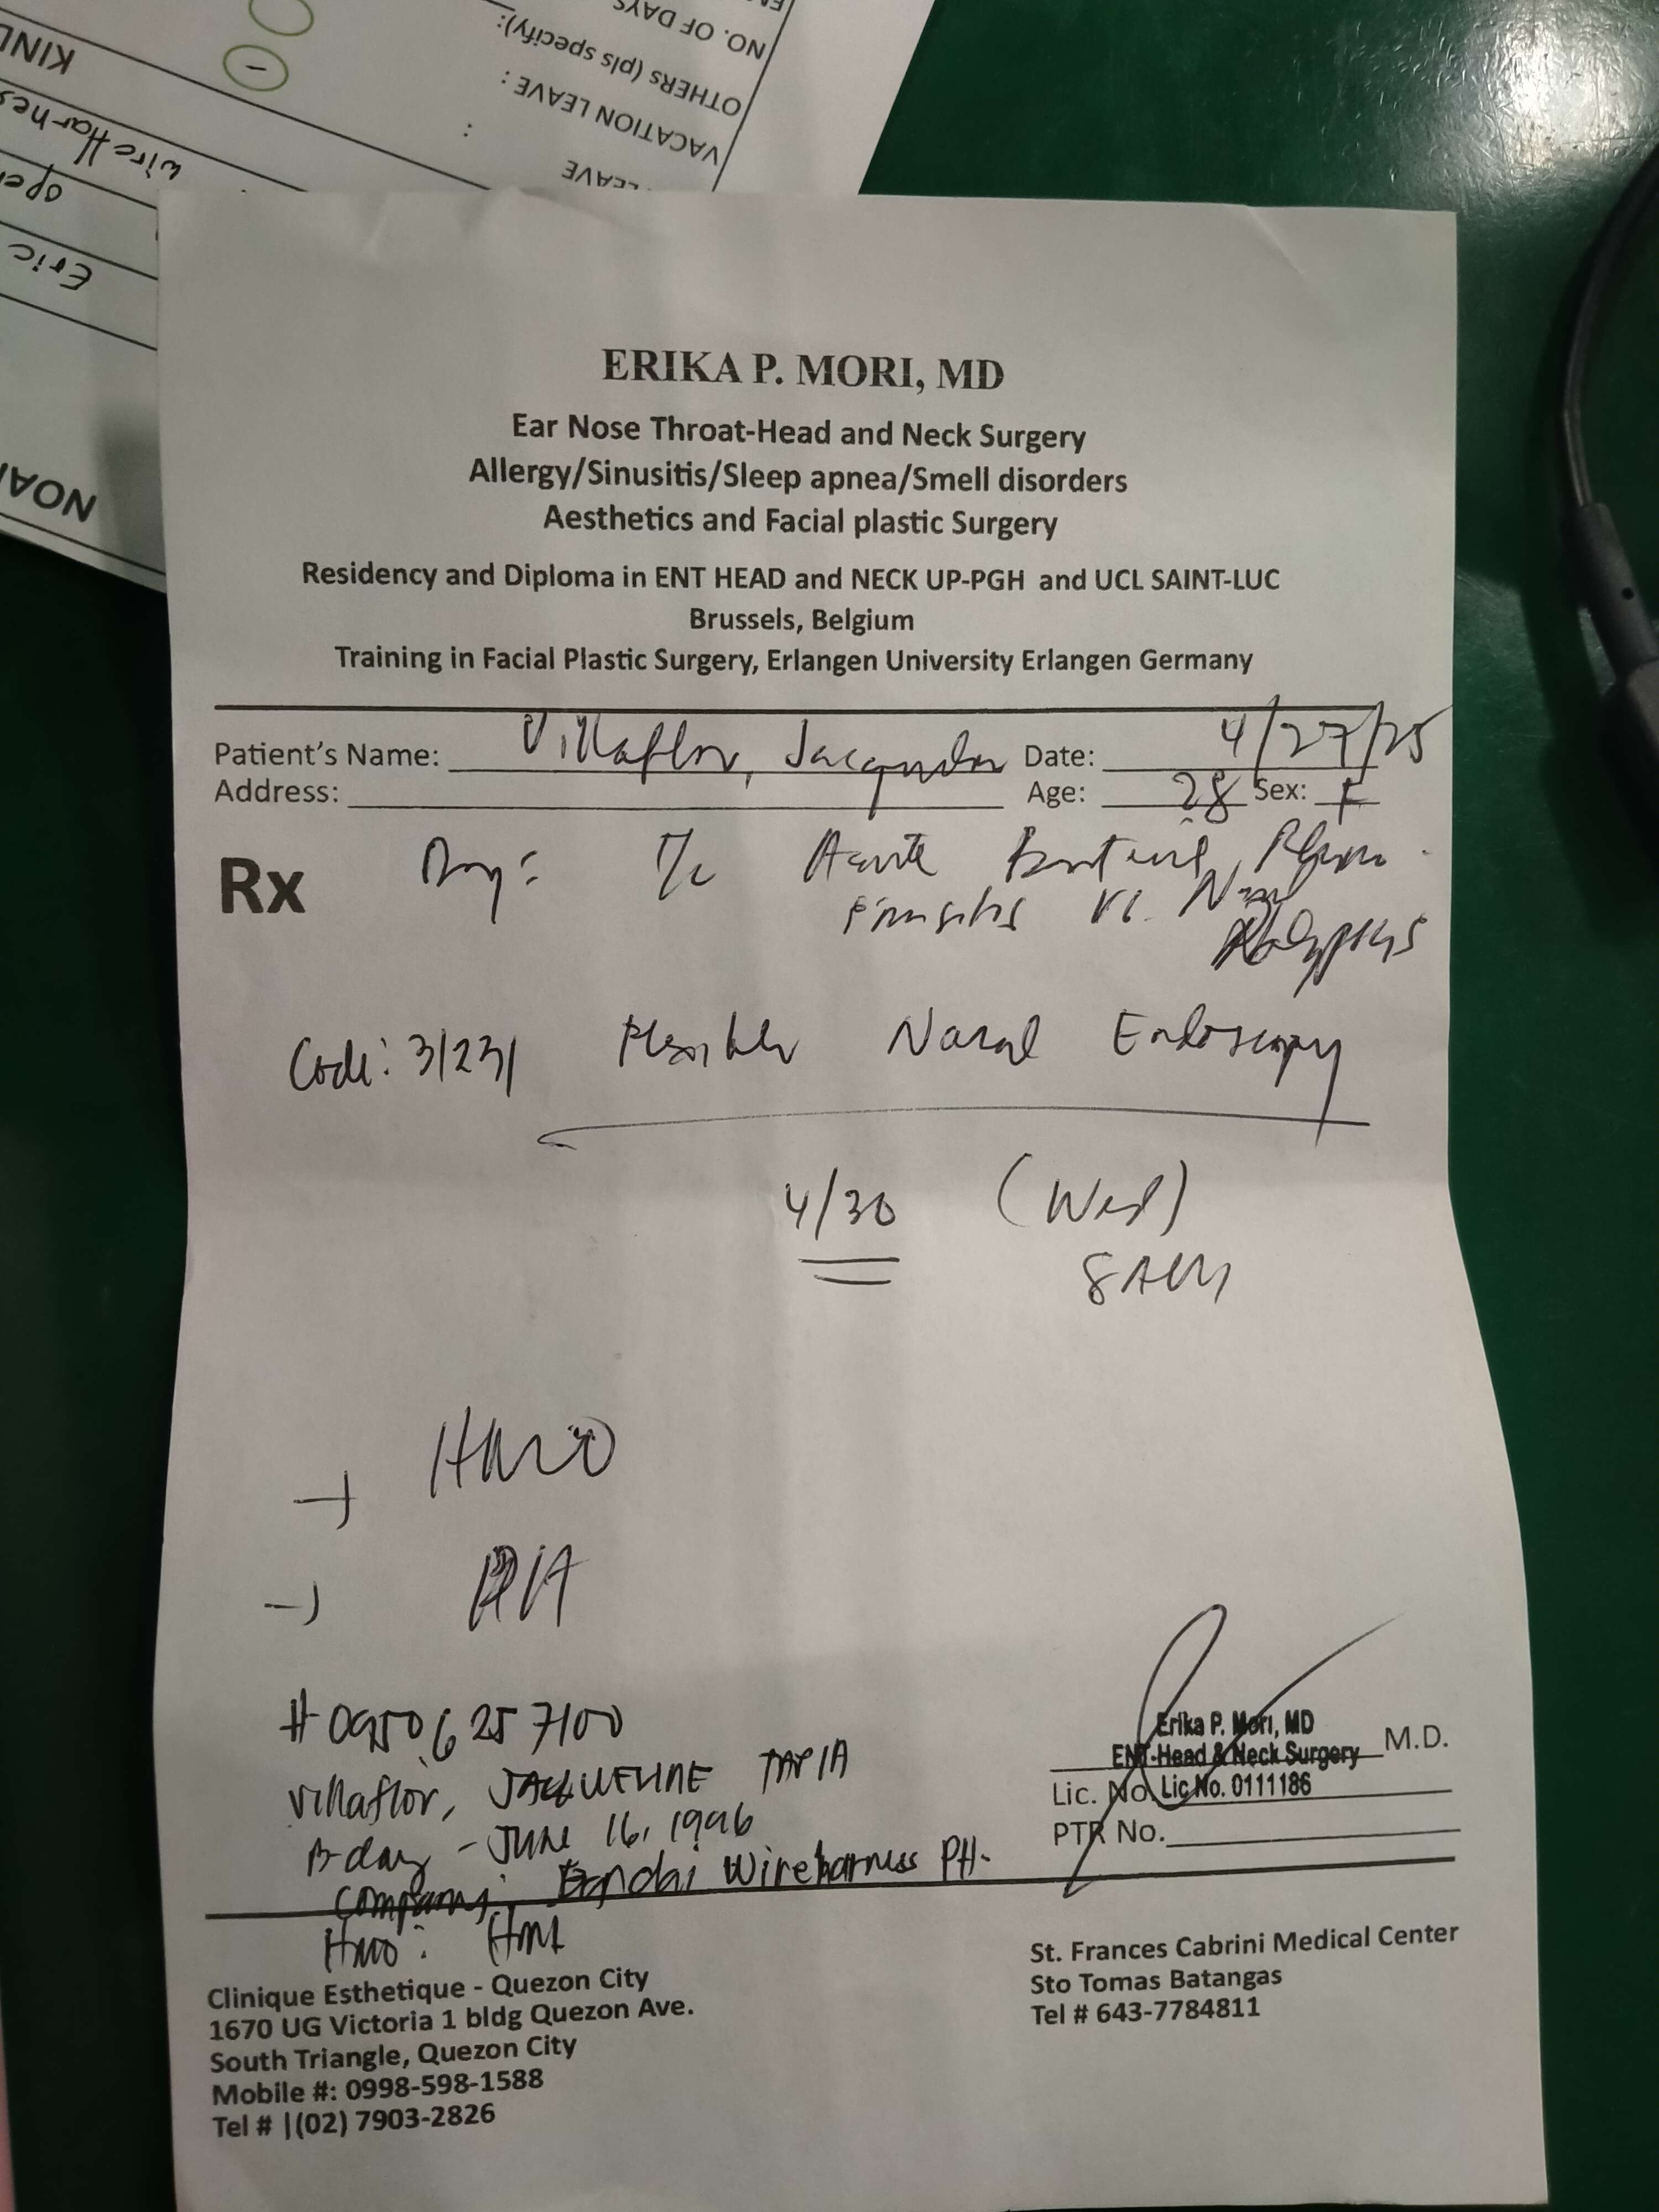 NO. OF DAYS
OTHERS (pls specify):
VACATION LEAVE :
LEAVE
:
KIND
wire Harnes
ope
Eric
NOAH
ERIKA P. MORI, MD
Ear Nose Throat-Head and Neck Surgery
Allergy/Sinusitis/Sleep apnea/Smell disorders
Aesthetics and Facial plastic Surgery
Residency and Diploma in ENT HEAD and NECK UP-PGH and UCL SAINT-LUC
Brussels, Belgium
Training in Facial Plastic Surgery, Erlangen University Erlangen Germany
Patient's Name: Villaflor, Date: 4/27/25
Address: Age: 28 Sex: F
Rx T/c Acute
sinusitis vs. Nasal
Code: 31231 Flexible Nasal Endoscopy
4/30 (Wed)
8AM
→ HMO
→
# 0950 6257100
Villaflor, JACQUELINE TAPIA
B-day - JUNE 16, 1996
Company: Bandai Wireharness PH.
HMO: HMI
Erika P. Mori, MD
ENT-Head & Neck Surgery M.D.
Lic. No. Lic No. 0111186
PTR No.
Clinique Esthetique - Quezon City
1670 UG Victoria 1 bldg Quezon Ave.
South Triangle, Quezon City
Mobile #: 0998-598-1588
Tel # |(02) 7903-2826
St. Frances Cabrini Medical Center
Sto Tomas Batangas
Tel # 643-7784811